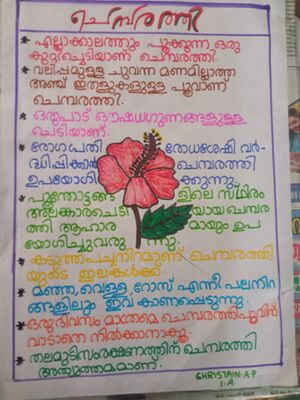 ചെമ്പരത്തി
* എല്ലാക്കാലത്തും പൂക്കുന്ന ഒരു
കുറ്റിച്ചെടിയാണ് ചെമ്പരത്തി.
* വലിപ്പമുള്ള ചുവന്ന മണമില്ലാത്ത
അഞ്ച് ഇതളുകളുള്ള പൂവാണ്
ചെമ്പരത്തി.
* ഒരുപാട് ഔഷധഗുണങ്ങളുള്ള
ചെടിയാണ്.
* രോഗപതി രോധശേഷി വർ-
ദ്ധിപ്പിക്കാൻ ചെമ്പരത്തി
ഉപയോഗി ക്കുന്നു.
* പൂന്തോട്ടങ്ങ ളിലെ സ്ഥിരം
അലങ്കാരചെടി യായ ചെമ്പര
ത്തി ആഹാര മായും ഉപ
യോഗിച്ചുവരു ന്നു.
* കടുത്തപച്ചനിറമാണ് ചെമ്പരത്തി
യുടെ ഇലകൾക്ക്.
* മഞ്ഞ, വെള്ള, റോസ് എന്നീ പലനിറ
ങ്ങളിലും ഇവ കാണപ്പെടുന്നു.
* ഒരു ദിവസം മാത്രമെ ചെമ്പരത്തിപൂവിന്
വാടാതെ നിൽക്കാനാകൂ.
* തലമുടിസംരക്ഷണത്തിന് ചെമ്പരത്തി
അത്യുത്തമമാണ്.
CHRISTAIN.A.P
1.A